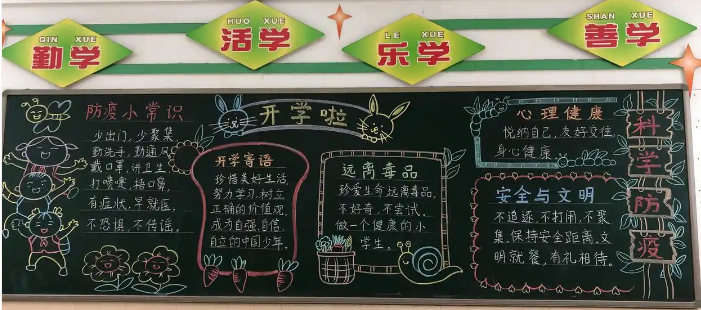 QIN XUE
勤学
HUO XUE
活学
LE XUE
乐学
SHAN XUE
善学
防疫小常识
少出门,少聚集
勤洗手,勤通风
戴口罩,讲卫生
打喷嚏,捂口鼻,
有症状,早就医,
不恐惧,不传谣。
开学啦
开学寄语
珍惜美好生活,
努力学习,树立
正确的价值观,
成为自强,自信,
自立的中国少年。
远离毒品
珍爱生命,远离毒品,
不好奇,不尝试,
做一个健康的小
学生。
心理健康
悦纳自己,友好交往,
身心健康
安全与文明
不追逐,不打闹,不聚
集,保持安全距离,文
明就餐,有礼相待。
科
学
防
疫